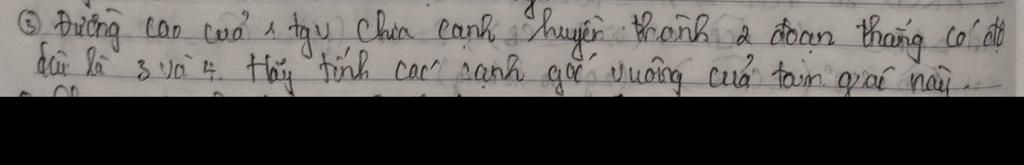 ③ Đường cao của 1 tgv chia cạnh huyền thành 2 đoạn thẳng có độ
dài là 3 và 4. Hãy tính các cạnh góc vuông của tam giác này.